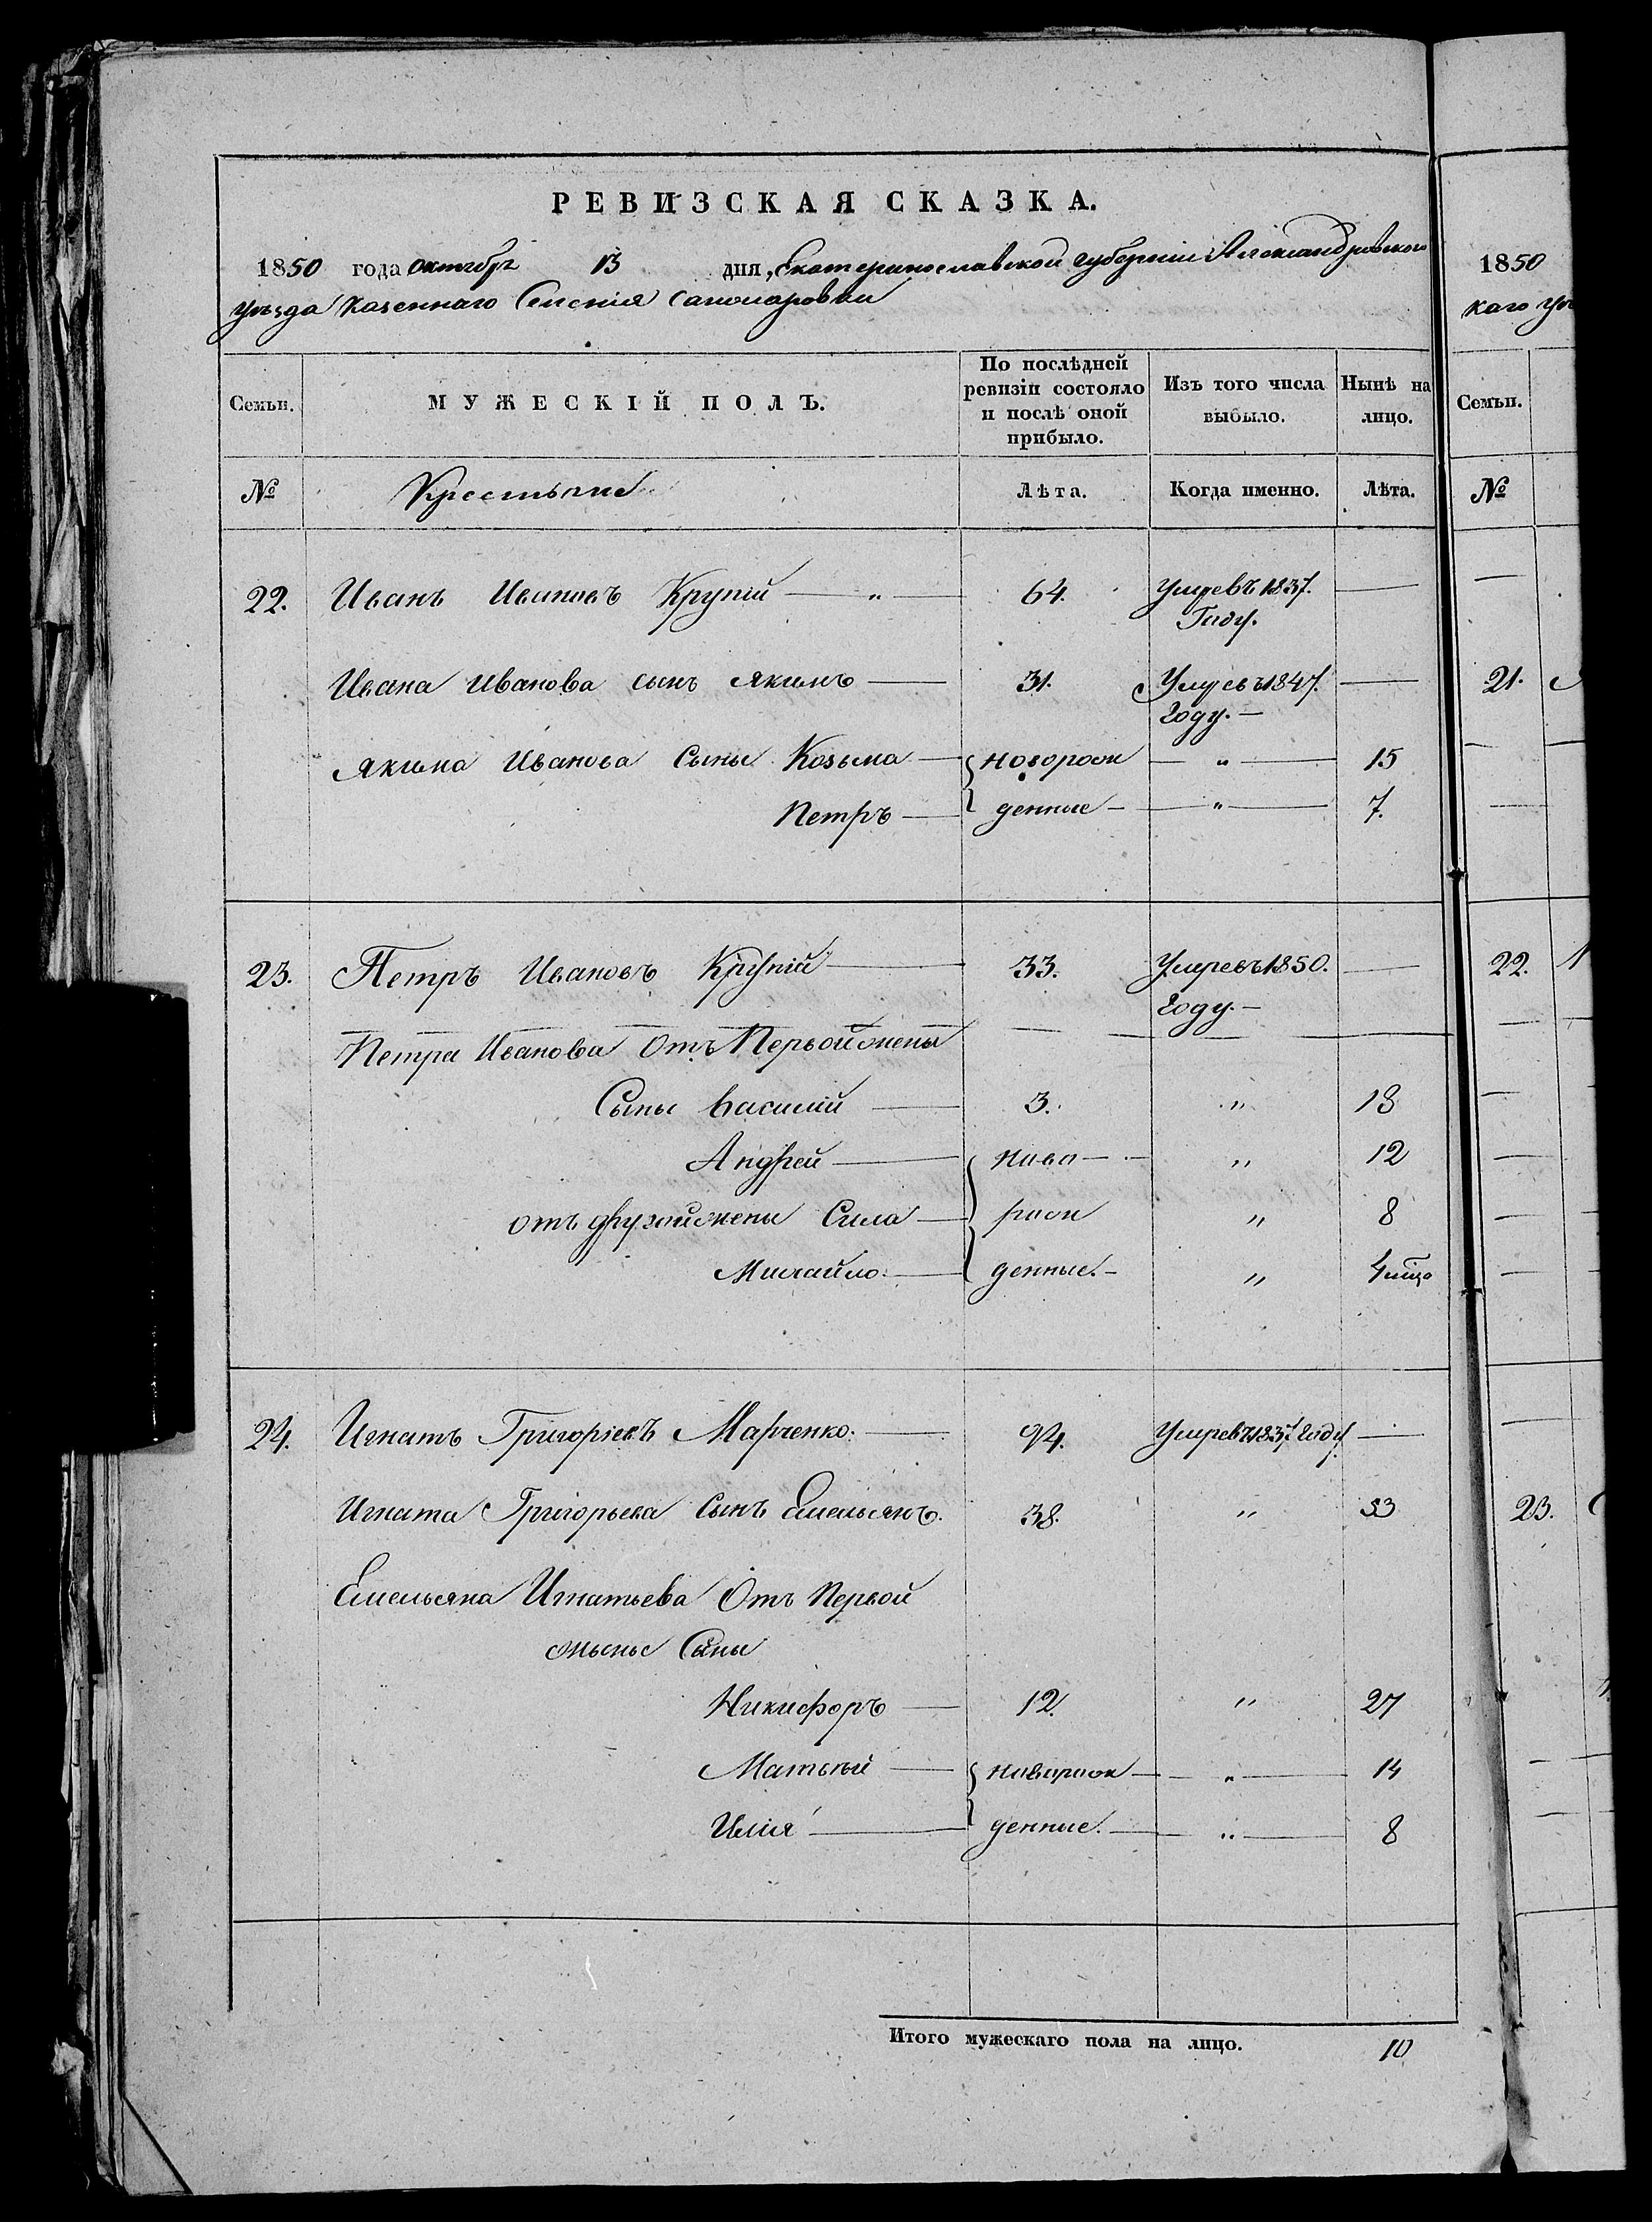 РЕВИЗСКАЯ СКАЗКА.
1850 года Октября 13 дня, Екатеринославской Губерніи Александровского
уѣзда Казеннаго Селенія
Семьи.
МУЖЕСКІЙ ПОЛЪ.
По послѣдней ревизіи состояло и послѣ оной прибыло.
Изъ того числа выбыло.
Нынѣ на лицо.
№ Крестьяне Лѣта. Когда именно. Лѣта.
22. Иванъ Ивановъ Крупій — " — 64. Умревъ 1837. —
Году.
Ивана Иванова сынъ Якимъ — 31. Умревъ 1847. —
Году. —
Якима Иванова Сыны Козьма — новорож — " — 15
Петръ — денные — — " — 7.
23. Петръ Ивановъ Крупій — 33. Умревъ 1850. —
Году. —
Петра Иванова Отъ Первой жены
Сыны Василій — 3. " 18
Андрей — ново — " 12
отъ другой жены Сила — рож " 8
Михайло. — денные. — " 4
24. Игнатъ Григоріевъ Марченко. — 94. Умревъ 1837 Году —
Игната Григорьева Сынъ Емельянъ. 38. " 53
Емельяна Игнатьева Отъ Первой
Сыны
Никифоръ — 12. " 27
Матвѣй — новорож — " — 14
Илія — денные. — " — 8
Итого мужескаго пола на лицо. 10
1850
каго
Семьи.
№
21.
22.
23.